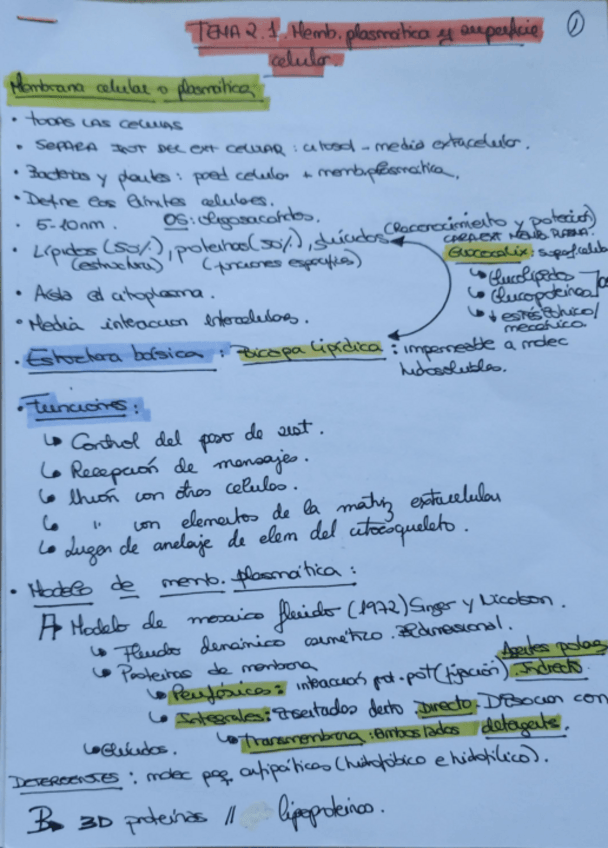 TEMA 2.1. Memb. plasmática y superficie celular
1
Membrana celular o plasmática
• TODAS LAS CELULAS
• SEPARA INT DEL EXT CELULAR : citosol - medio extracelular.
• Bacterias y plantas : pared celular + memb plasmatica.
• Define los límites celulares.
• 5-10nm. OS: oligosacaridos.
(Reconocimiento y protección)
CARA EXT MEMB PLASMA.
• Lípidos (50%), proteinas (50%), glúcidos
(estructura) (funciones especificas)
Glucocalix : superf. celula
↳ Glucolipidos
↳ Glucoproteinas
↳ ↓ estrés químico/
mecánico.
• Aisla el citoplasma.
• Media interaccion intercelulares.
• Estructura básica : Bicapa Lipídica : impermeable a molec
hidrosolubles.
• Funciones :
↳ Control del paso de sust.
↳ Recepción de mensajes.
↳ Unión con otras celulas.
↳ " con elementos de la matriz extracelular
↳ Lugar de anclaje de elem del citoesqueleto.
• Modelo de memb. plasmática :
A Modelo de mosaico fluido (1972) Singer y Nicolson.
↳ Fluido dinámico asimétrico. Bidimensional.
↳ Proteinas de membrana
Agentes polares
↳ Periféricas : interacción prot-prot (fijación) Indirecto
↳ Integrales : Insertados dentro Directo. Disocian con
↳ Transmembrana : ambos lados detergente.
↳ Glúcidos.
DETERGENTES : molec peq. anfipáticas (hidrofóbico e hidrofílico).
B 3D proteinas // lipoproteinas.